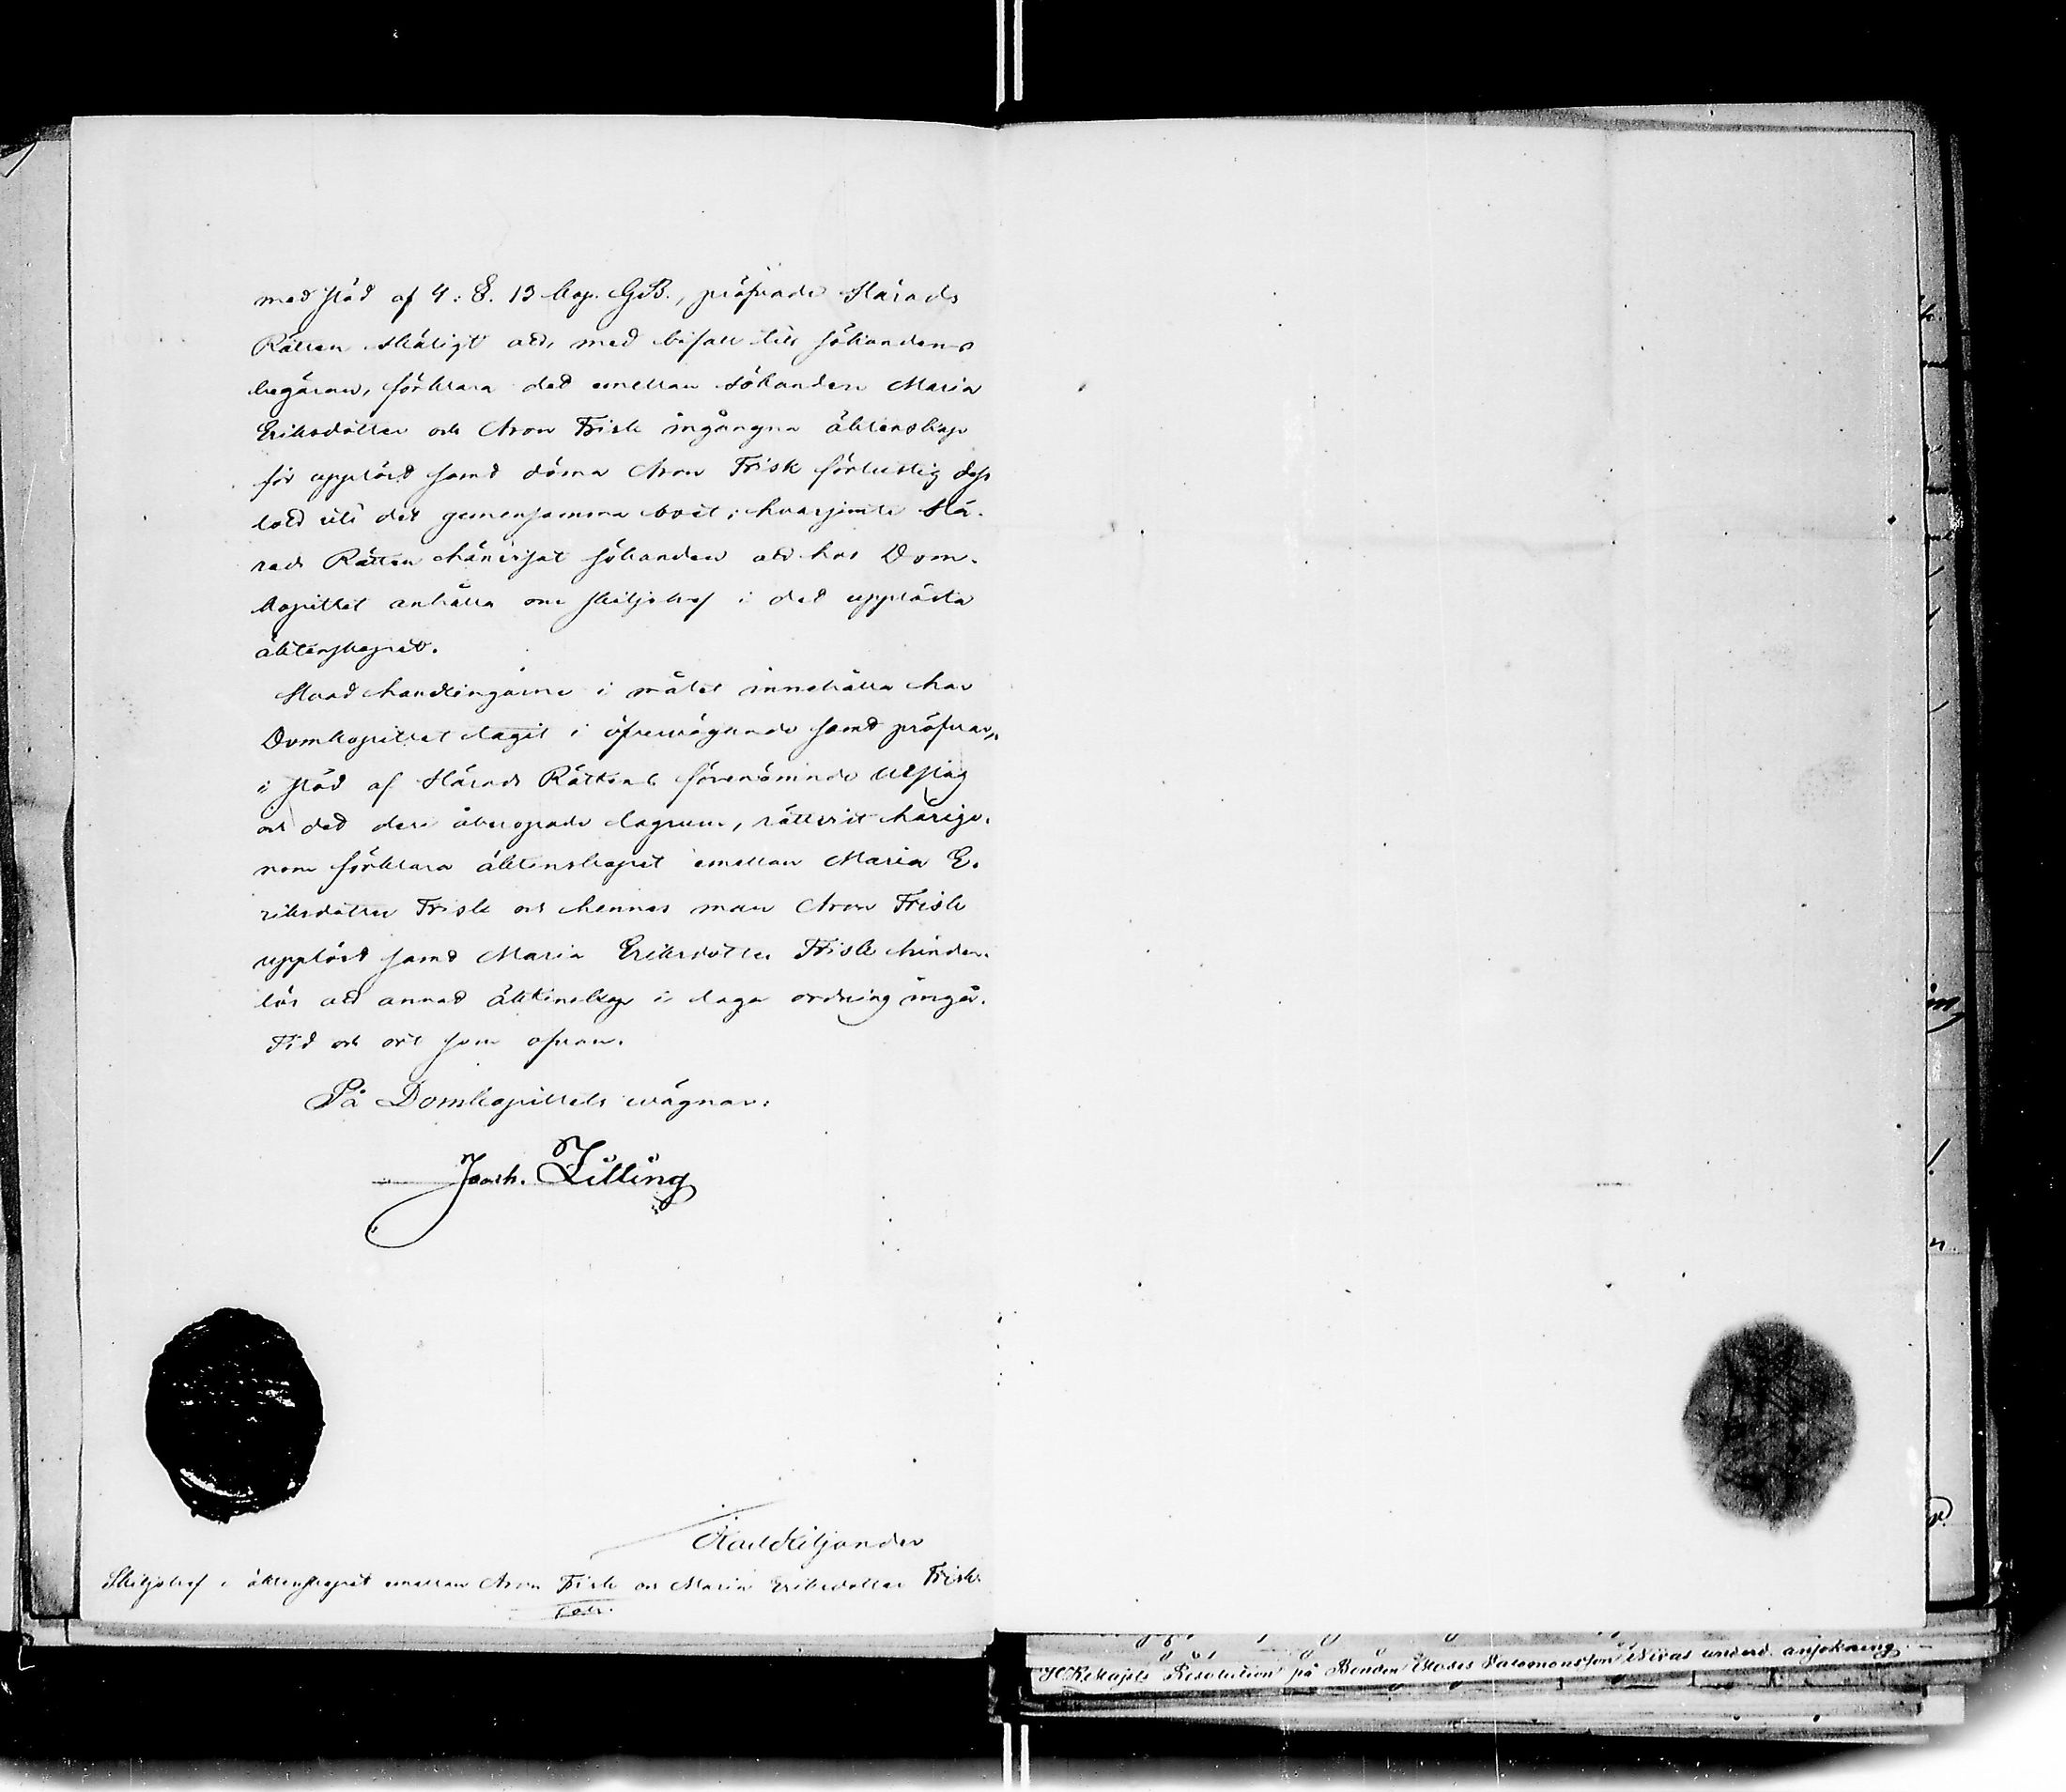 med stöd af 4: §. 13 Cap. G.B., pröfvade Härads
Rätten skäligt att, med bifall till sökandens
begäran, förklara det emellan sökanden Maria
Eriksdotter och Aron Frisk ingångna äktenskap
för upplöst samt döma Aron Frisk förlustig dess
lott uti det gemensamma boet; hvarjemte Hä-
rads Rätten hänvisat sökanden att hos Dom-
kapitlet anhålla om skiljobref i det upplösta
äktenskapet.
Hvad handlingarne i målet innehålla har
Domkapitlet tagit i öfvervägande samt pröfvar,
i stöd af Härads Rättens förenämnde utslag
och det deri åberopade lagrum, rättvist härige-
nom förklara äktenskapet emellan Maria E-
riksdotter Frisk och hennes man Aron Frisk
upplöst samt Maria Eriksdotter Frisk hinder-
lös att annat äktenskap i laga ordning ingå.
Tid och ort som ofvan.
På Domkapitlets vägnar:
Joach. Zilling
Karl Kiljander
Skiljobref i äktenskapet emellan Aron Frisk och Maria Eriksdotter Frisk.
H K Majts Resolution på Bonden Moses Salomonsson underd. ansökning